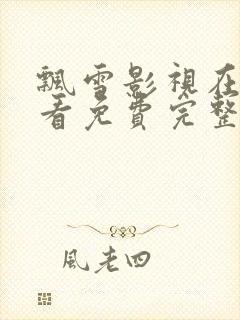 飄雪影視在
看免費完整
風老四